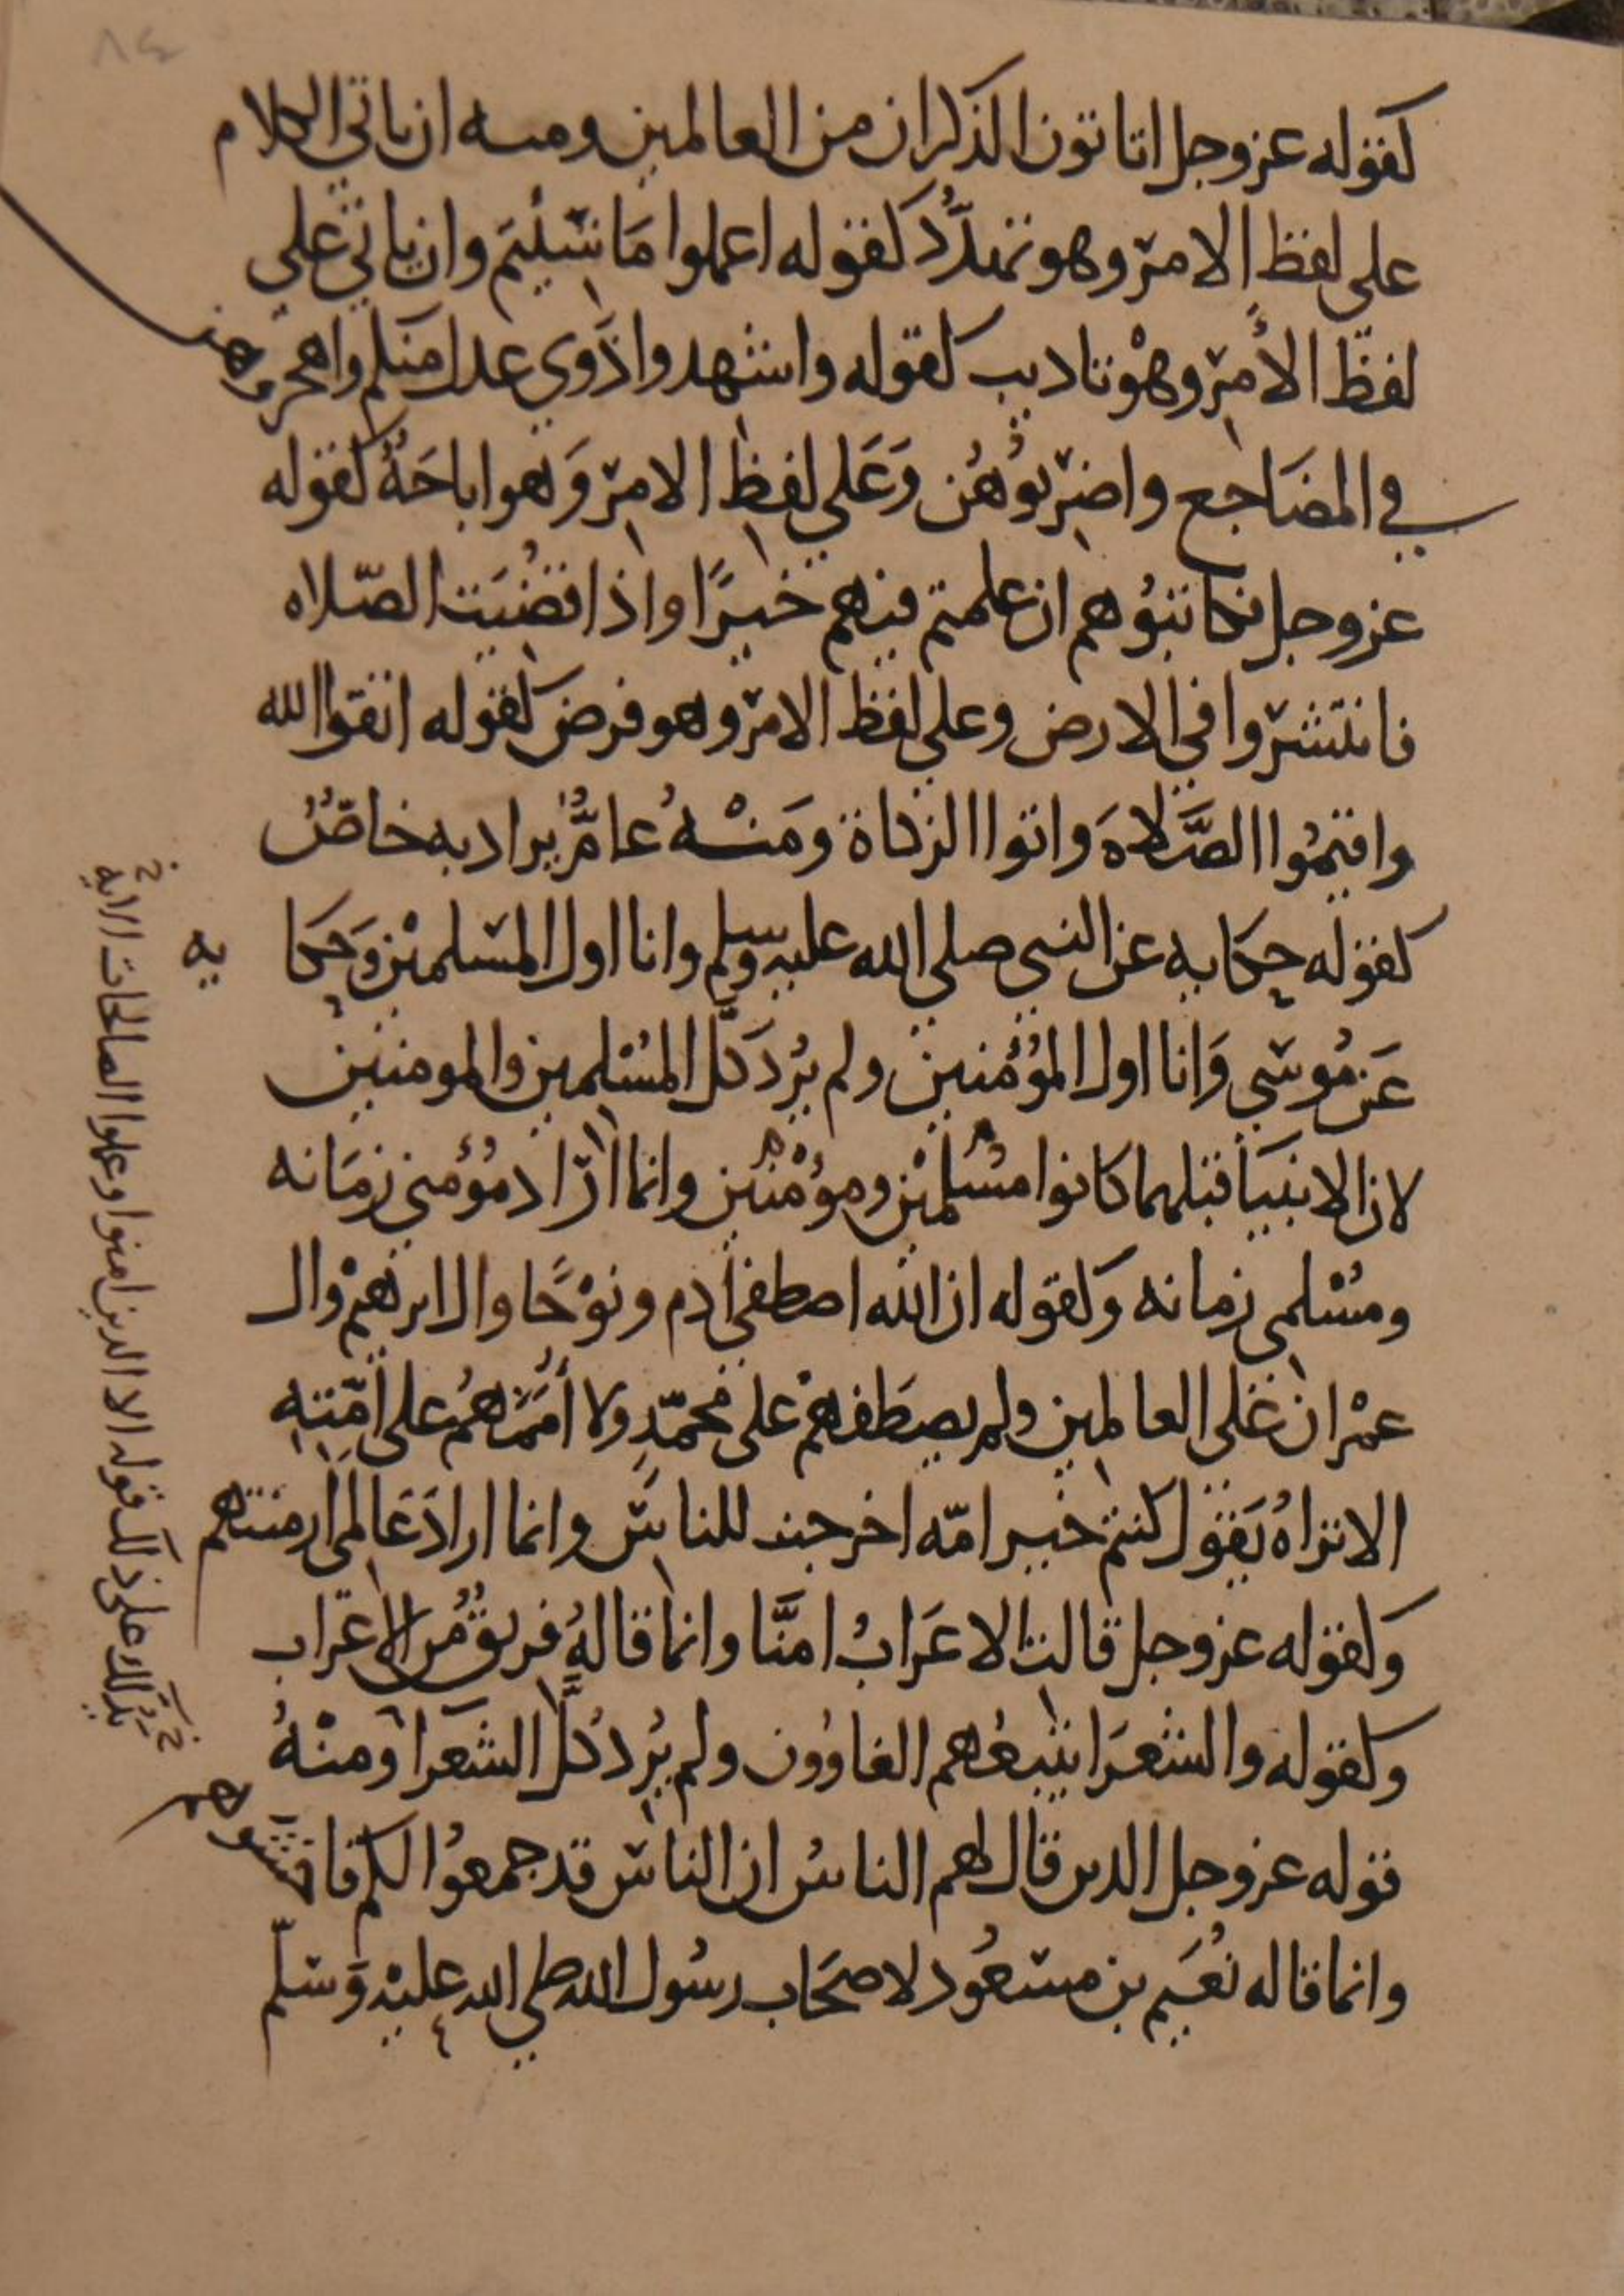 ٨٤
كقوله عز وجل اتاتون الذكران من العالمين ومنه ان ياتي الكلام
على لفظ الامر وهو تهدد كقوله اعملوا مَا شئتم وان ياتي علي
لفظ الأمر وهْو تاديب كقوله واشهدوا ذَوي عدل منكم واهجروهن
في المضَاجع واضربُوهُن وَعَلي لفظ الامر وَهو اباحَةٌ كقوله
عز وجل فكاتبُوهم ان علمتم فيهم خيرًا واذا قضُيَت الصّلاه
فانتشروا في الارض وعلي لفظ الامر وهو فرض كقوله اتقوا الله
واقيمُوا الصَّلاةَ واتوا الزكاة ومَنْهُ عامٌّ يراد به خاصٌ
كقوله حِكايه عن النبي صلي الله عليه وسلم وانا اول المسلمين وَحِكا
يه
عَن مُوسي وَانا اول المُؤمنين ولم يُرد كلَّ المسُلمين والمومنين
لان الانبيَا قبلهما كانوا مسُلمْين ومؤمْنين وانما ارَاد مؤُمني زمَانه
ومسُلمي زمانه وَكقوله ان الله اصطفي ادم ونوْحًا وال ابرهيمْ وال
عمْران عَلى العالمين ولم يصطَفهمْ على محمّدٍ ولا أُممَهمُ على أمّتِهِ
الا تراهُ يَقول كنتم خير امّه اخرجت للناس وانما ارادَ عَالمي ازمنتهم
وَكقوله عز وجل قالت الاعَرابُ امنَّا وانما قالهُ فريقٌ من الاعَراب
وكقوله والشعَرا يتبعُهم الغاوُون ولم يُرد كلَّ الشعَرا ومنْهُ
قوله عز وجل الدين قال لهم الناسُ ان الناس قد جمعوُا لكم فاخشوهم
وانما قاله نُعَيم بن مسعُود لاصحَاب رسُول الله صلي الله عليْه وَسَلّم
يَدُلك على ذلك قوله الا الدين امنوا وعملوا الصالحات الايه